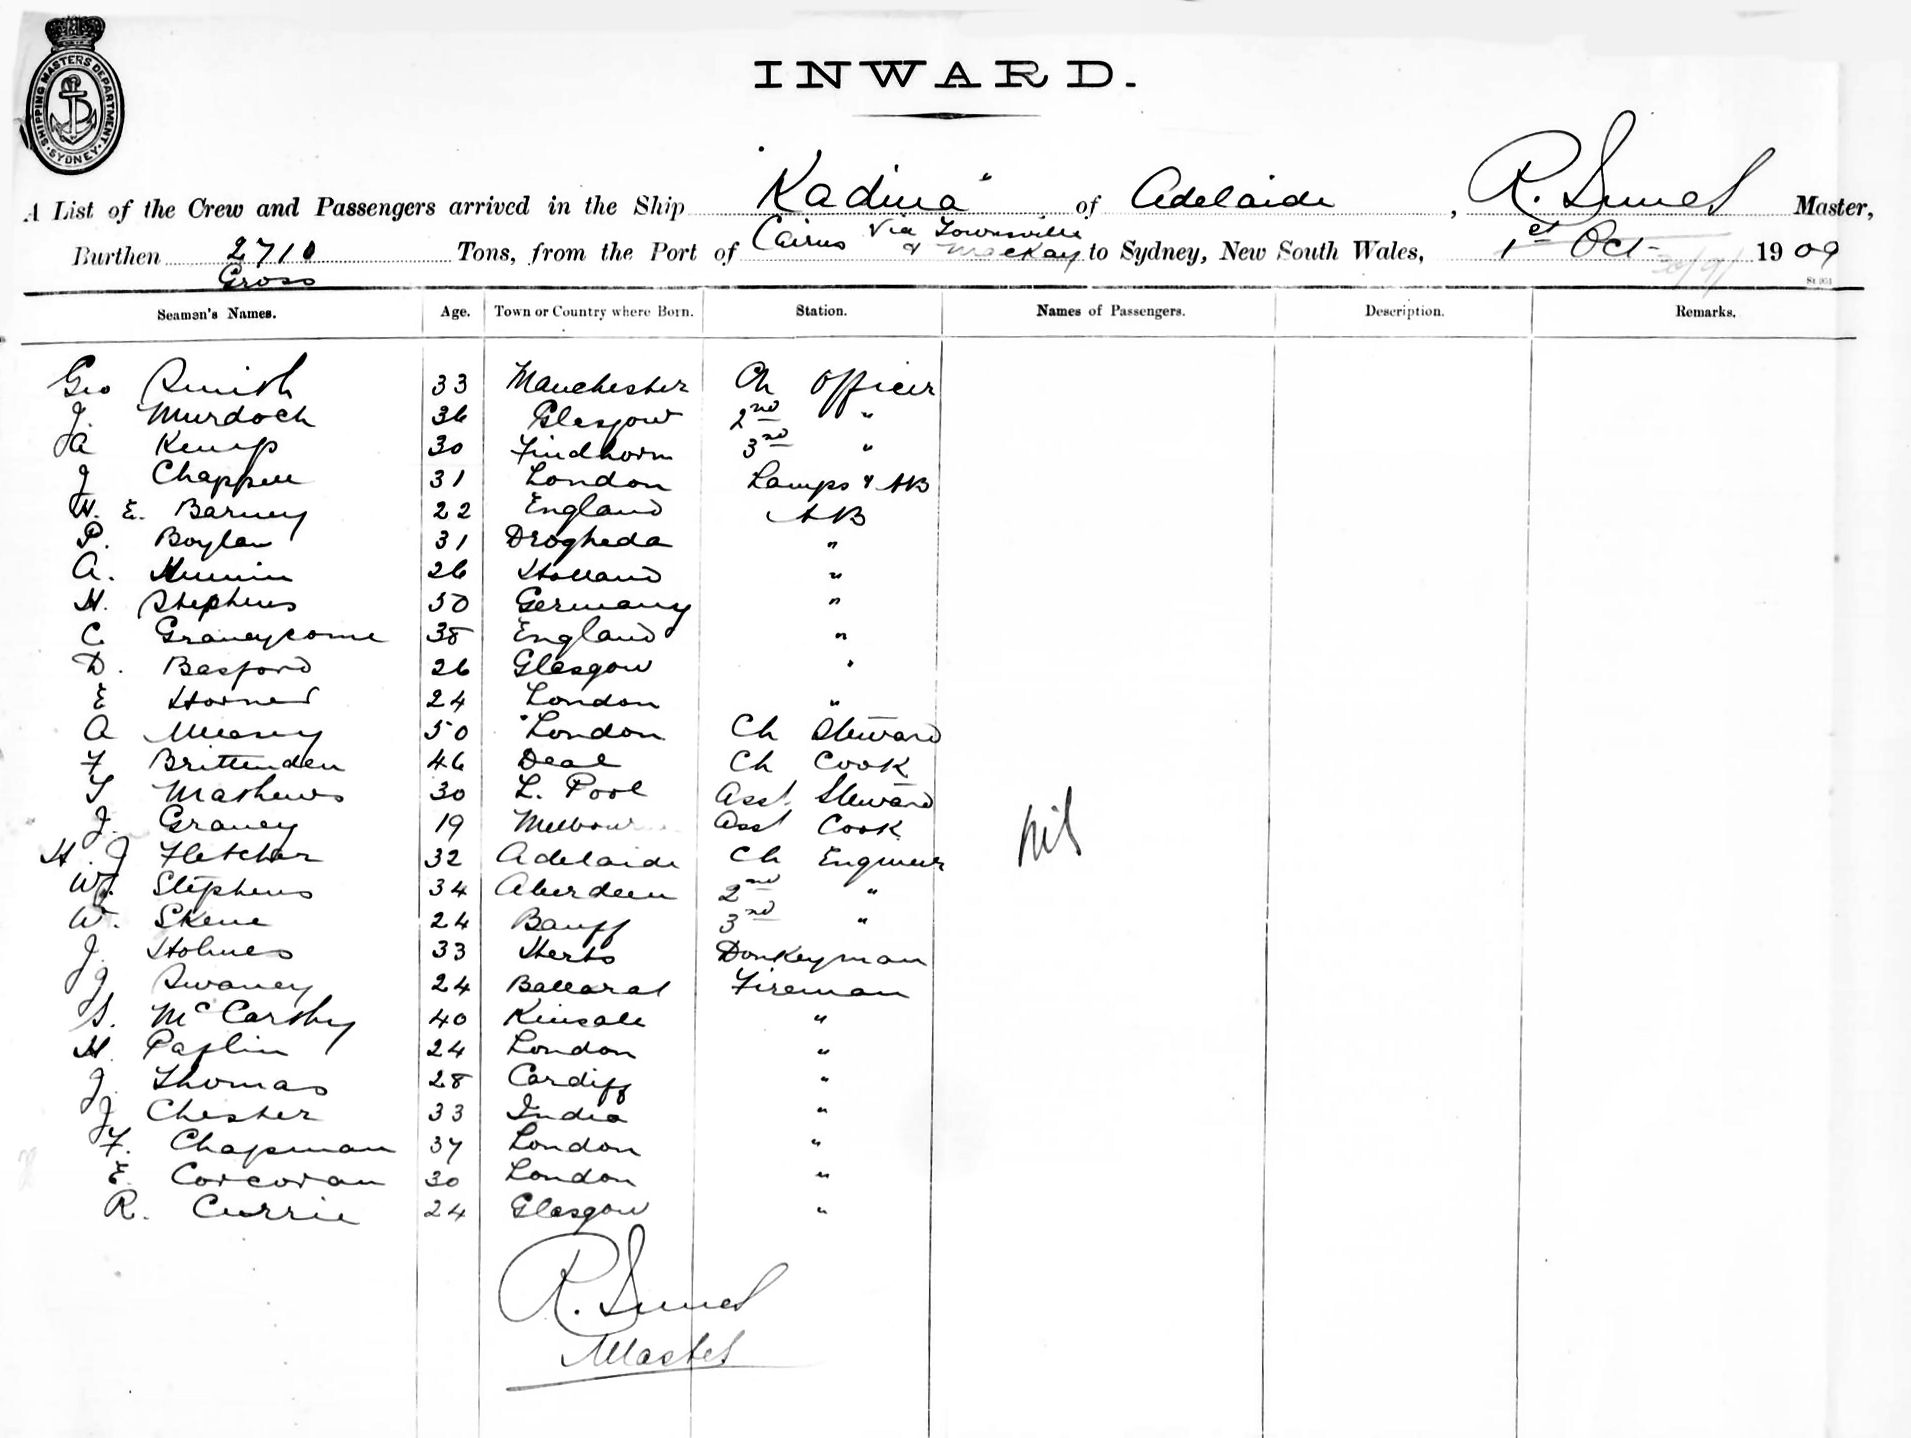 SHIPPING MASTERS DEPARTMENT · SYDNEY ·
INWARD.
A List of the Crew and Passengers arrived in the Ship "Kadina" of Adelaide, R. Master,
Burthen 2710 Gross Tons, from the Port of Cairns via Townsville & Mackay to Sydney, New South Wales, 1st Oct 30/9/ 1909
Seaman's Names. Age. Town or Country where Born. Station. Names of Passengers. Description. Remarks.
Geo Smith 33 Manchester Ch Officer
J. Murdoch 36 Glasgow 2nd "
A Kemp 30 Findhorn 3rd "
J Chappell 31 London Lamps & AB
H. E. Barney 22 England AB
P. Boylan 31 Drogheda "
A. 26 Holland "
H. Stephens 50 Germany "
C. Graneycome 38 England "
D. Basford 26 Glasgow "
E Horner 24 London "
A Measey 50 London Ch Steward
F Brittenden 46 Deal Ch Cook
T Mathews 30 L. Pool Asst. Steward
J. Graney 19 Melbour Asst Cook
Nil
H. J Fletcher 32 Adelaide Ch Engineer
W. Stephens 34 Aberdeen 2nd "
W. Skene 24 Banff 3rd "
J. Holmes 33 Herts Donkeyman
J Swaney 24 Ballarat Fireman
S. McCarthy 40 Kinsale "
H. Paplin 24 London "
J. Thomas 28 Cardiff "
J Chester 33 India "
F. Chapman 37 London "
E. Corcoran 30 London "
R. Currie 24 Glasgow "
R.
Master